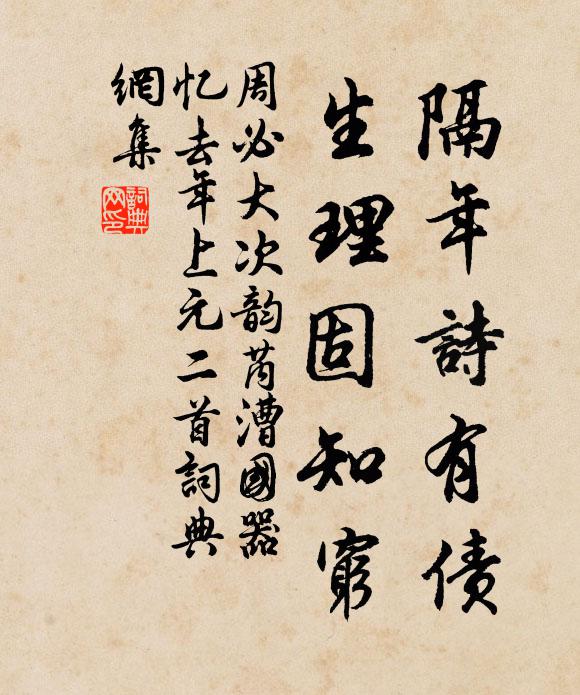 隔年詩有债
生理固知窮
周必大次韵芮漕國器
忆去年上元二首詞典
網集
詞典网印